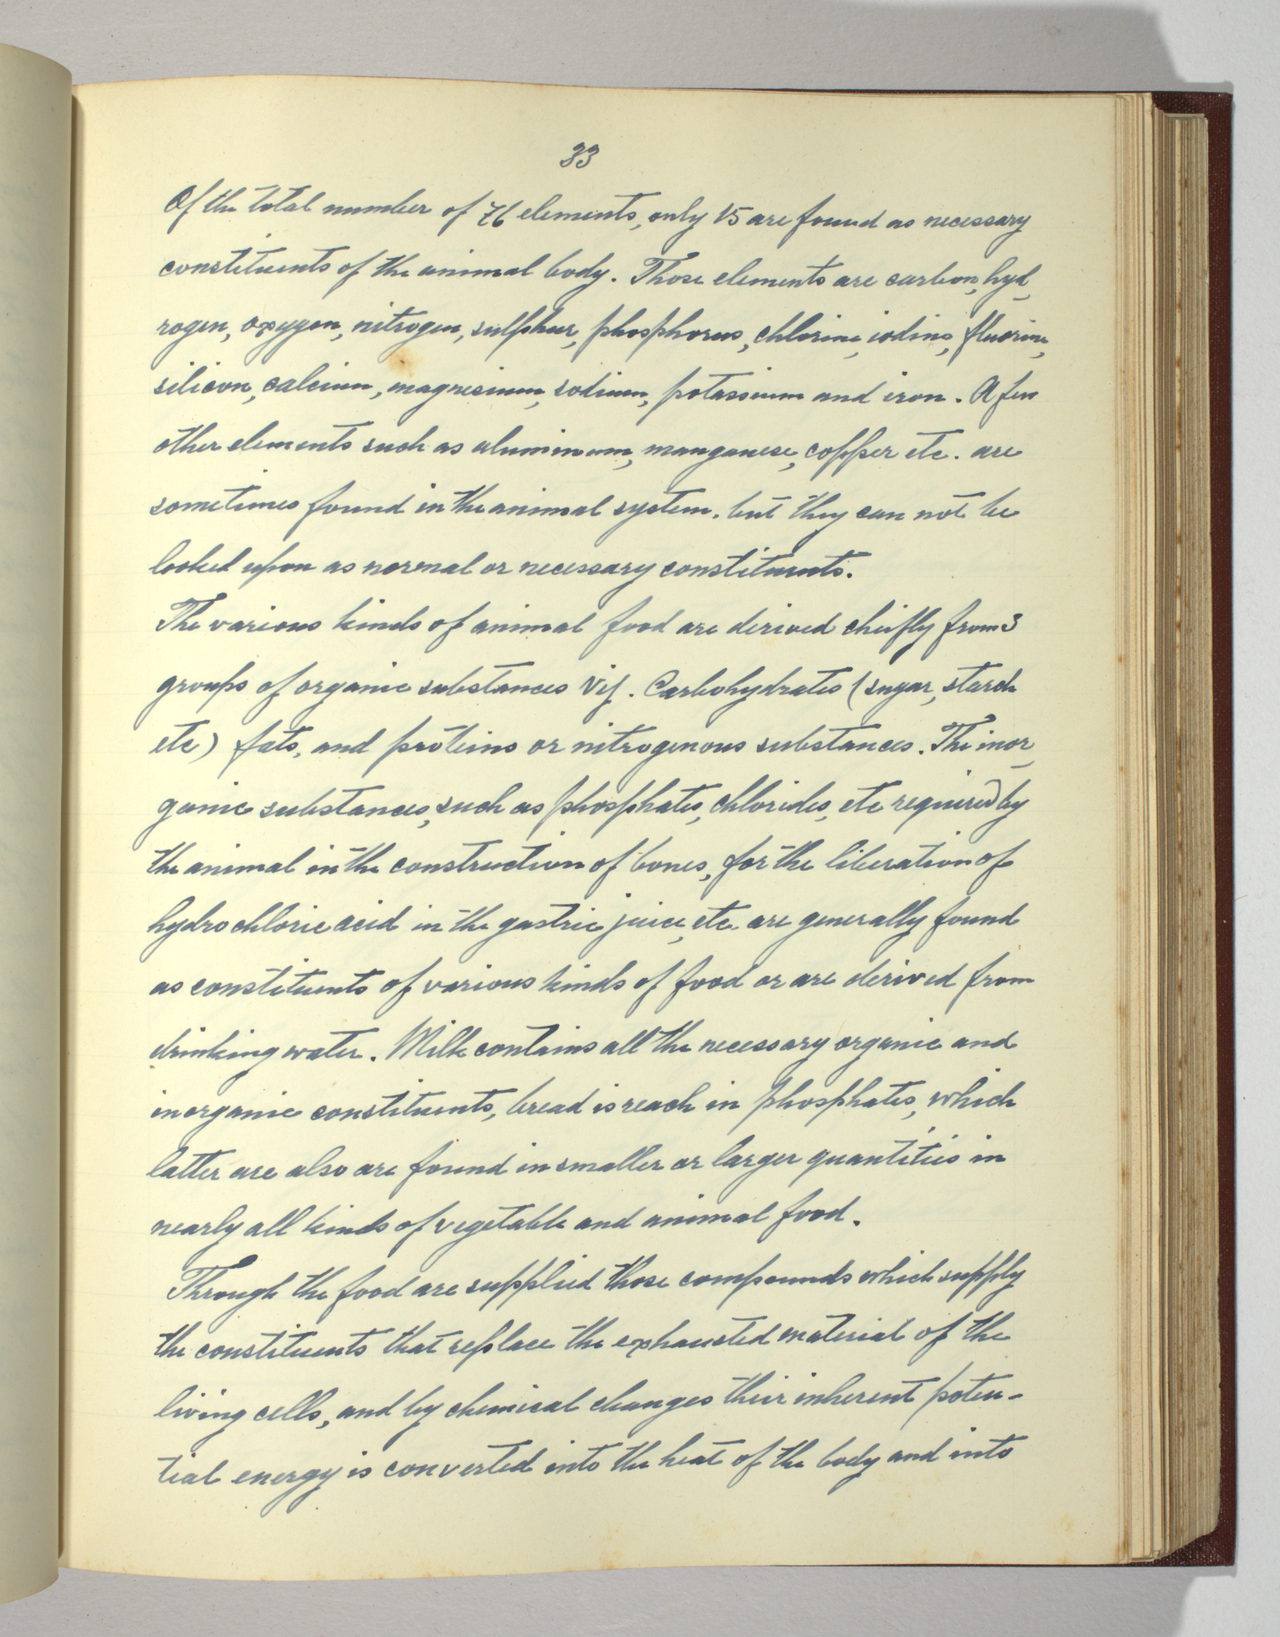 33
Of the total number of 76 elements, only 15 are found as necessary
constituents of the animal body. Those elements are carbon, hyd-
rogen, oxygen, nitrogen, sulphur, phosphorus, chlorine, iodine, fluorine,
silicon, calcium, magnesium, sodium, potassium and iron. A few
other elements such as aluminum, manganese, copper etc. are
sometimes found in the animal system, but they can not be
looked upon as normal or necessary constituents.
The various kinds of animal food are derived cheifly from 3
groups of organic substances Viz. Carbohydrates (sugar, starch
etc) fats, and proteins or nitrogenous substances. The inor-
ganic substances, such as phosphates, chlorides, etc required by
the animal in the construction of bones, for the liberation of
hydrochloric acid in the gastric juice, etc. are generally found
as constituents of various kinds of food or are derived from
drinking water. Milk contains all the necessary organic and
inorganic constituents, bread is reach in phosphates, which
latter are also are found in smaller or larger quantities in
nearly all kinds of vegetable and animal food.
Through the food are supplied those compounds which supply
the constituents that replace the exhausted material of the
living cells, and by chemical changes their inherent poten-
tial energy is converted into the heat of the body and into